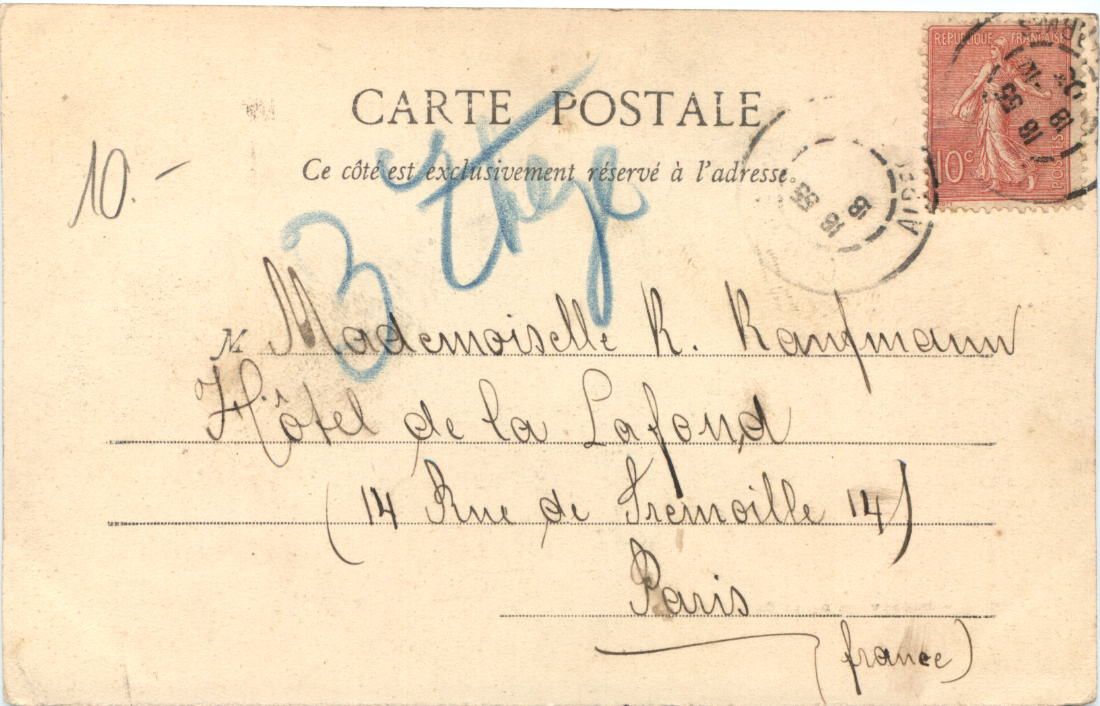 CARTE POSTALE
Ce côté est exclusivement réservé à l'adresse.
RÉPUBLIQUE FRANÇAISE
10c
POSTES
10.-
3
M Mademoiselle K. Kaufmann
Hôtel de la Lafond
(14 Rue de Tremoille 14)
Paris
(france)